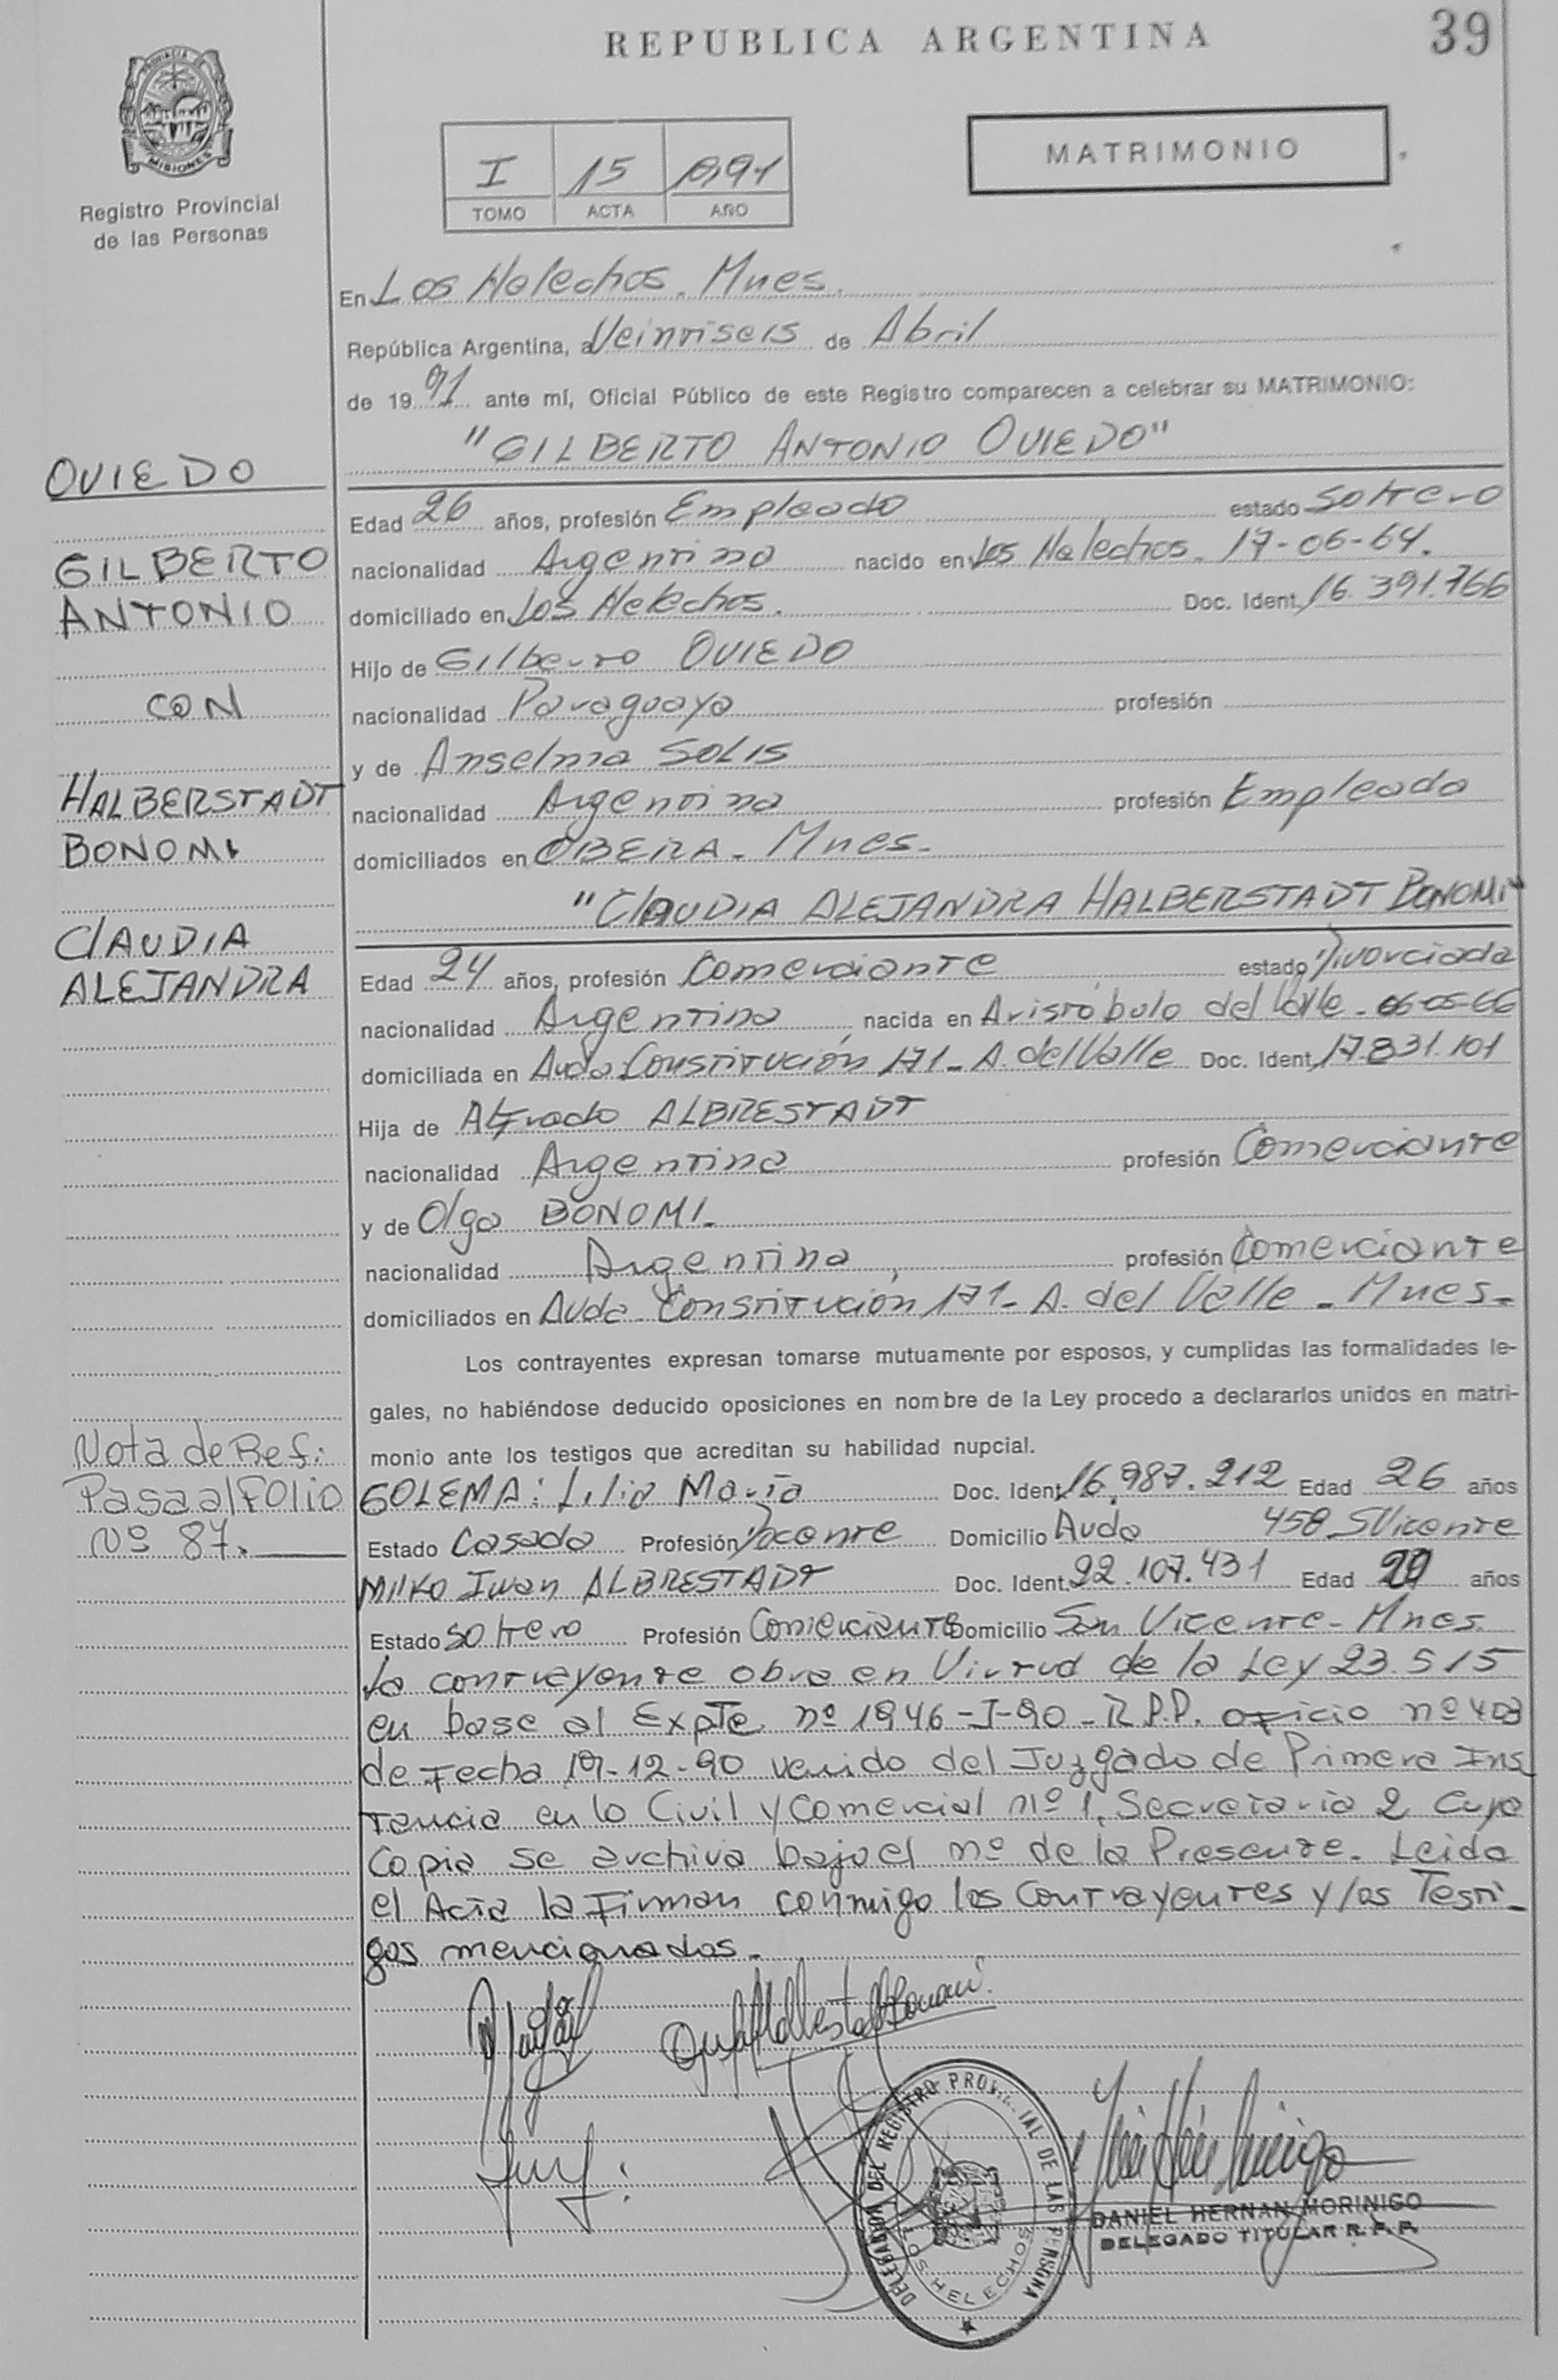 REPUBLICA ARGENTINA
39
PROVINCIA
MISIONES
Registro Provincial
de las Personas
I 15 1991
TOMO ACTA AÑO
MATRIMONIO
En Los Helechos. Mnes.
República Argentina, a Veintiseis de Abril
de 19 91 ante mí, Oficial Público de este Registro comparecen a celebrar su MATRIMONIO:
"GILBERTO ANTONIO OVIEDO"
OVIEDO
GILBERTO
ANTONIO
CON
HALBERSTADT
BONOMI
CLAUDIA
ALEJANDRA
Edad 26 años, profesión Empleado estado Soltero
nacionalidad Argentina nacido en Los Helechos. 17-06-64.
domiciliado en Los Helechos. Doc. Ident. 16.391.766
Hijo de Gilberto OVIEDO
nacionalidad Paraguaya profesión
y de Anselma SOLIS
nacionalidad Argentina profesión Empleada
domiciliados en OBERA - Mnes.
"CLAUDIA ALEJANDRA HALBERSTADT BONOMI"
Edad 24 años, profesión Comerciante estado Divorciada
nacionalidad Argentina, nacida en Aristóbulo del Valle - 06-05-66
domiciliada en Avda. Constitución 171 - A. del Valle Doc. Ident. 17.831.101
Hija de Alfredo ALBRESTADT
nacionalidad Argentina profesión Comerciante
y de Olga BONOMI.
nacionalidad Argentina, profesión Comerciante
domiciliados en Avda. Constitución 171 - A. del Valle - Mnes -
Los contrayentes expresan tomarse mutuamente por esposos, y cumplidas las formalidades le-
gales, no habiéndose deducido oposiciones en nombre de la Ley procedo a declararlos unidos en matri-
monio ante los testigos que acreditan su habilidad nupcial.
Nota de Ref:
Pasa al FOLIO
Nº 87.
GOLEMA: Lilia María Doc. Ident. 16.987.212 Edad 26 años
Estado Casada Profesión Docente Domicilio Avda 458 S Vicente
MilKo Iwan ALBRESTADT Doc. Ident. 22.107.431 Edad 20 años
Estado Soltero Profesión Comerciante Domicilio San Vicente - Mnes.
La contrayente obra en Virtud de la Ley 23.515
en base al ExpTe nº 1946-I-90 - R.P.P. oficio nº 403
de Fecha 19-12-90 venido del Juzgado de Primera Ins
tancia en lo Civil y Comercial nº 1, Secretaria 2 cuya
Copia se archiva bajo el nº de la Presente. Leida
el Acta la Firman conmigo los Contrayentes y los Testi-
gos mencionados.-
DELEGACION DEL REGISTRO PROVINCIAL DE LAS PERSONA
LOS HELECHOS
DANIEL HERNAN MORINIGO
DELEGADO TITULAR R. P. P.